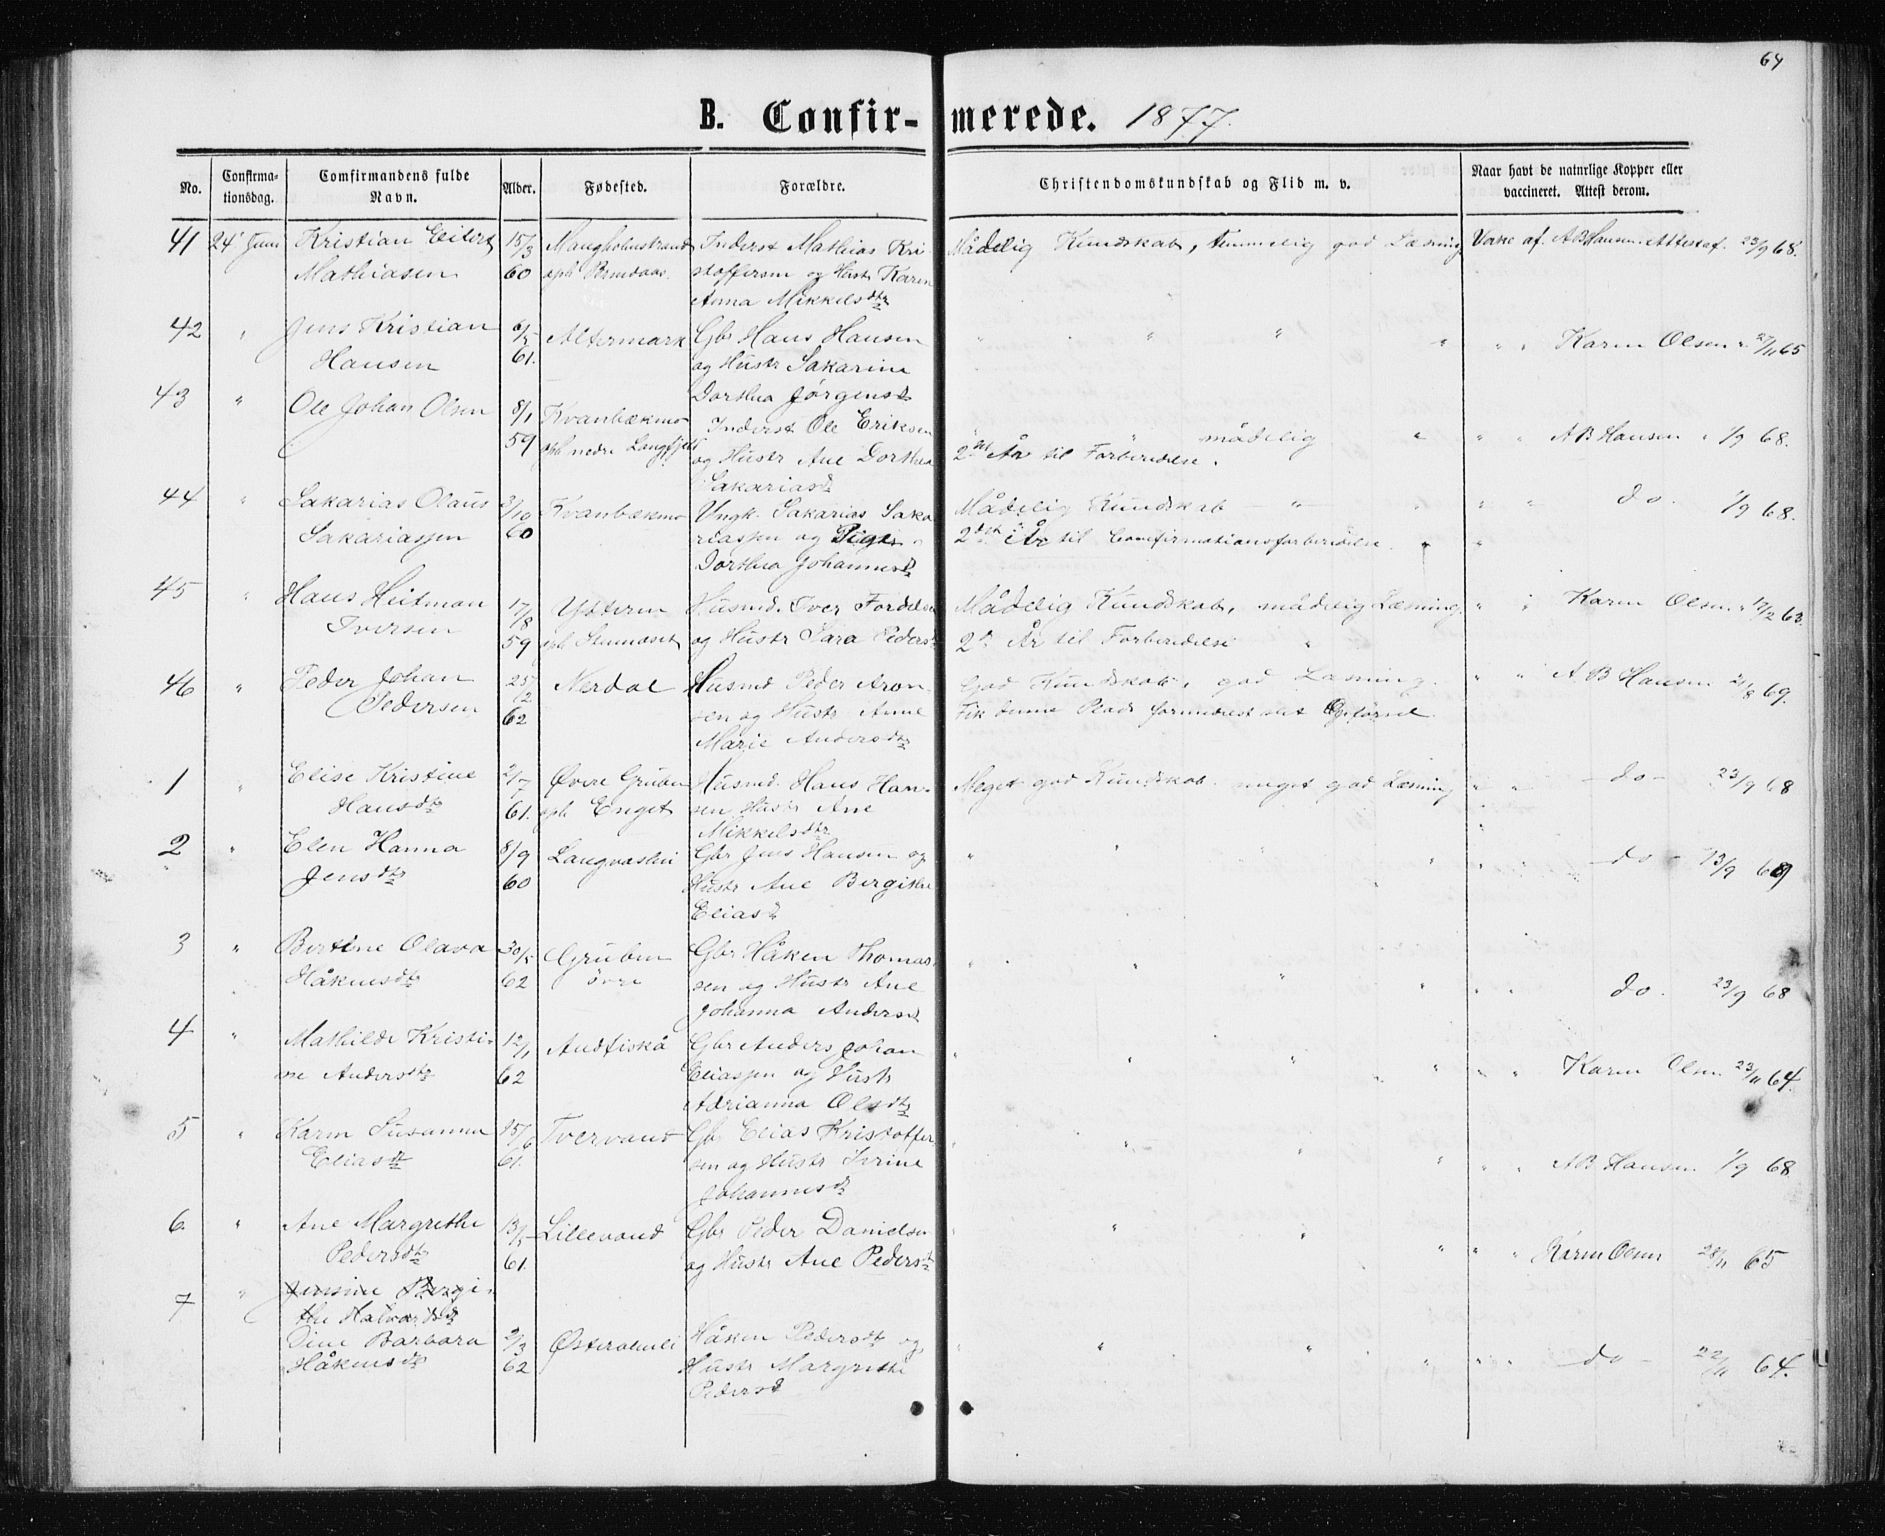 64
B. Confirmerede. 1877.
No. Confirmationsdag. Comfirmandens fulde Navn. Alder. Fødested. Forældre. Christendomskundskab og Flid m. v. Naar havt de naturlige Kopper eller vaccineret. Attest derom.
41 24' Juni Kristian Eilert 15/3 Inderst Mathias Kri- Mådelig Kundskab, temmelig god Læsning Vakc. af A B Hansen Attest af 23/9 68.
Mathiasen 60 stoffersen og Hustr Karen
Anna Mikkelsdtr
42 " Jens Kristian 6/5 Altermark Gbr Hans Hansen " " " " " " Karen Olsen " 27/11 65
Hansen 61. og Hustr Sakarine
Dorthea Jørgensd
43 " Ole Johan Olsen 8/1 Kvanbækmo Inderst Ole Eriksen " " mådelig " " " A B Hansen " 1/9 68.
59 oph nedre Langfjell og Hustr Ane Dorthea 2det År til Forberedelse.
Sakariasd
44 " Sakarias Olaus 3/10 Kvanbækmo Ungk. Sakarias Saka- Mådelig Kundskab - " - " " " do. 1/9 68.
Sakariassen 60 riassen og Pige 2det År til Comfirmationsforberedelse. " "
Dorthea Johannesd
45 " Hans Heitman 17/8 Ytteren Husmd. Iver Fordelsen Mådelig Kundskab, mådelig Læsning " " Karen Olsen " 17/2 63.
Iversen 59 og Hustr Sara Pedersd 2d År til Forberedelse "
46 " Peder Johan 25/2 Nerdal Husmd Peder Aron- God Kundskab, god Læsning. " " A B Hansen 21/8 69.
Pedersen 62 sen og Hustr Anne Fik denne Plads formedelst set Opførsel
Marie Andersdtr
1 " Elise Kristine 2/7 Øvre Gruben Husmd. Hans Han- Meget god Kundskab. meget god Læsning " " - do - 23/9 68
Hansdtr 61. oph Enget sen Hustr Ane
Mikkelsdtr
2 " Elen Hanna 8/9 Langvastlni Gbr Jens Hansen og " " " " " " do - 13/9 69
Jensdtr 60 Hustr Ane Bergithe
Eliasd
3 " Bertine Olava 30/5 Gruben Gbr Håken Thomas- " " " " " " do. 23/9 68
Håkensdtr 62 övre sen og Hustr Ane
Johanna Andersd
4 " Mathilde Kristi- 12/1 Andfiskå Gbr Anders Johan " " " " " " Karen Olsen 23/11 64.
ne Andersdtr 62 Eliassen og Hustr
Adrianna Olsdtr
5 " Karen Susanna 15/6 Tvervand Gbr Elias Kristoffer- " " " " " " A B Hansen 1/9 68
Eliasdtr 61. sen og Hustr Ivrine
Johannesd
6. " Ane Margrethe 13/5 Lillevand Gbr Peder Danielsen " " " " " " Karen Olsen 28/11 65
Pedersdtr 61. og Hustr Ane Pedersd
7 " Jensine Bergi-
the Halvardsd
Dine Barbara 2/3 Håken Pedersdtr og " " " " " " do - 22/11 64.
Håkensdtr 62 Hustr Margrethe
Pedersd